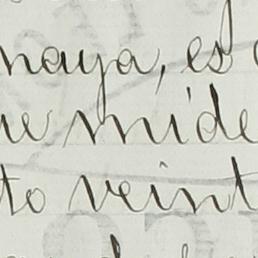 naya, es
ue mide
to veint